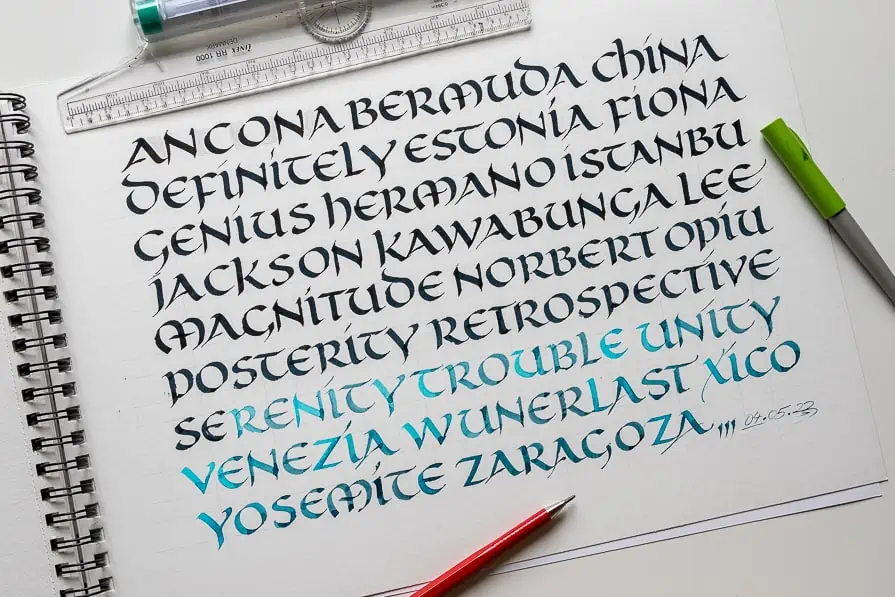 LINEX RR 1000
DENMARK
ANCONA BERMUDA CHINA
DEFINITELY ESTONIA FIONA
GENIUS HERMANO ISTANBU
JACKSON KAWABUNGA LEE
MAGNITUDE NORBERT OPIU
POSTERITY RETROSPECTIVE
SERENITY TROUBLE UNITY
VENEZIA WUNERLAST XICO
YOSEMITE ZARAGOZA ,,, 04.05.23